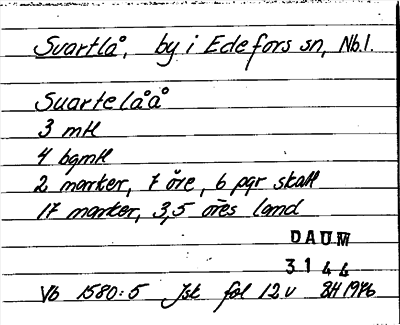 Svartlå, by i Edefors sn, Nb.l.
Suartelåå
3 mtl
4 bgmtl
2 marker, 7 öre, 6 pgr skatt
17 marker, 3,5 öres land
DAUM
3144
Vb 1580:5 Jsk fol 12v BH 1976